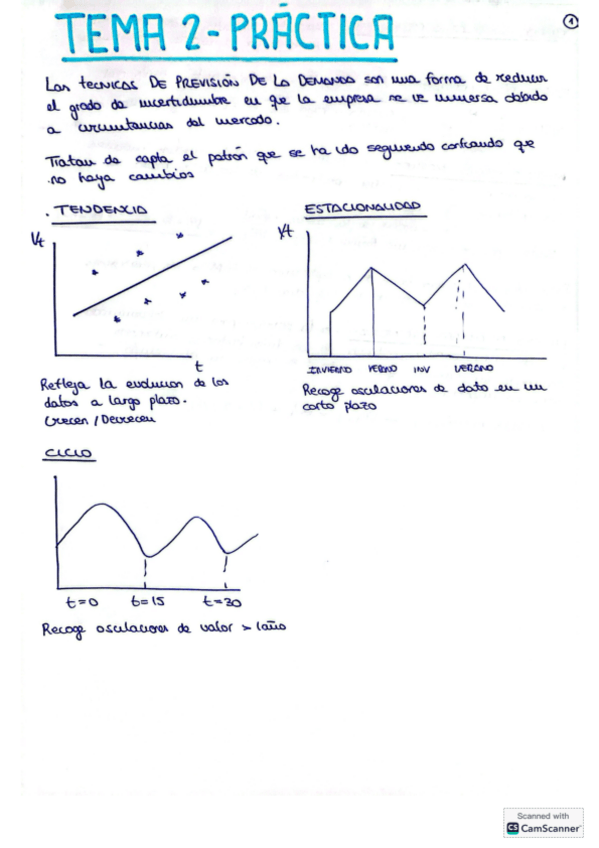 TEMA 2-PRÁCTICA
1
Las TECNICAS DE PREVISIÓN DE LA DEMANDA son una forma de reducir
el grado de incertidumbre en que la empresa se ve inmersa debido
a circunstancias del mercado.
Tratan de capta el patrón que se ha ido seguiendo confiando que
no haya cambios
. TENDENCIA
ESTACIONALIDAD
Yt
Yt
t
INVIERNO VERANO INV VERANO
Refleja la evolucion de los
datos a largo plazo.
Crecen / Decrecen
Recoge osculaciones de dato en un
corto plazo
CICLO
t=0 t=15 t=30
Recoge osculaciones de valor > 1año
Scanned with
CS CamScanner